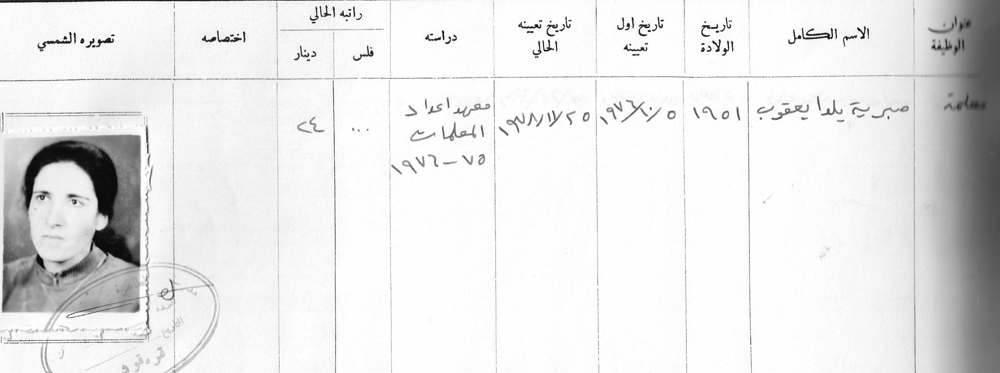 عنوان
الوظيفة
الاسم الكامل
تاريخ
الولادة
تاريخ اول
تعيينه
تاريخ تعيينه
الحالي
دراسته
راتبه الحالي
فلس
دينار
اختصاصه
تصويره الشمسي
معلمة
صبرية يلدا يعقوب
١٩٥١
١٩٧٦/١٠/٥
معهد اعداد
المعلمات
٧٥-١٩٧٦
...
٢٤